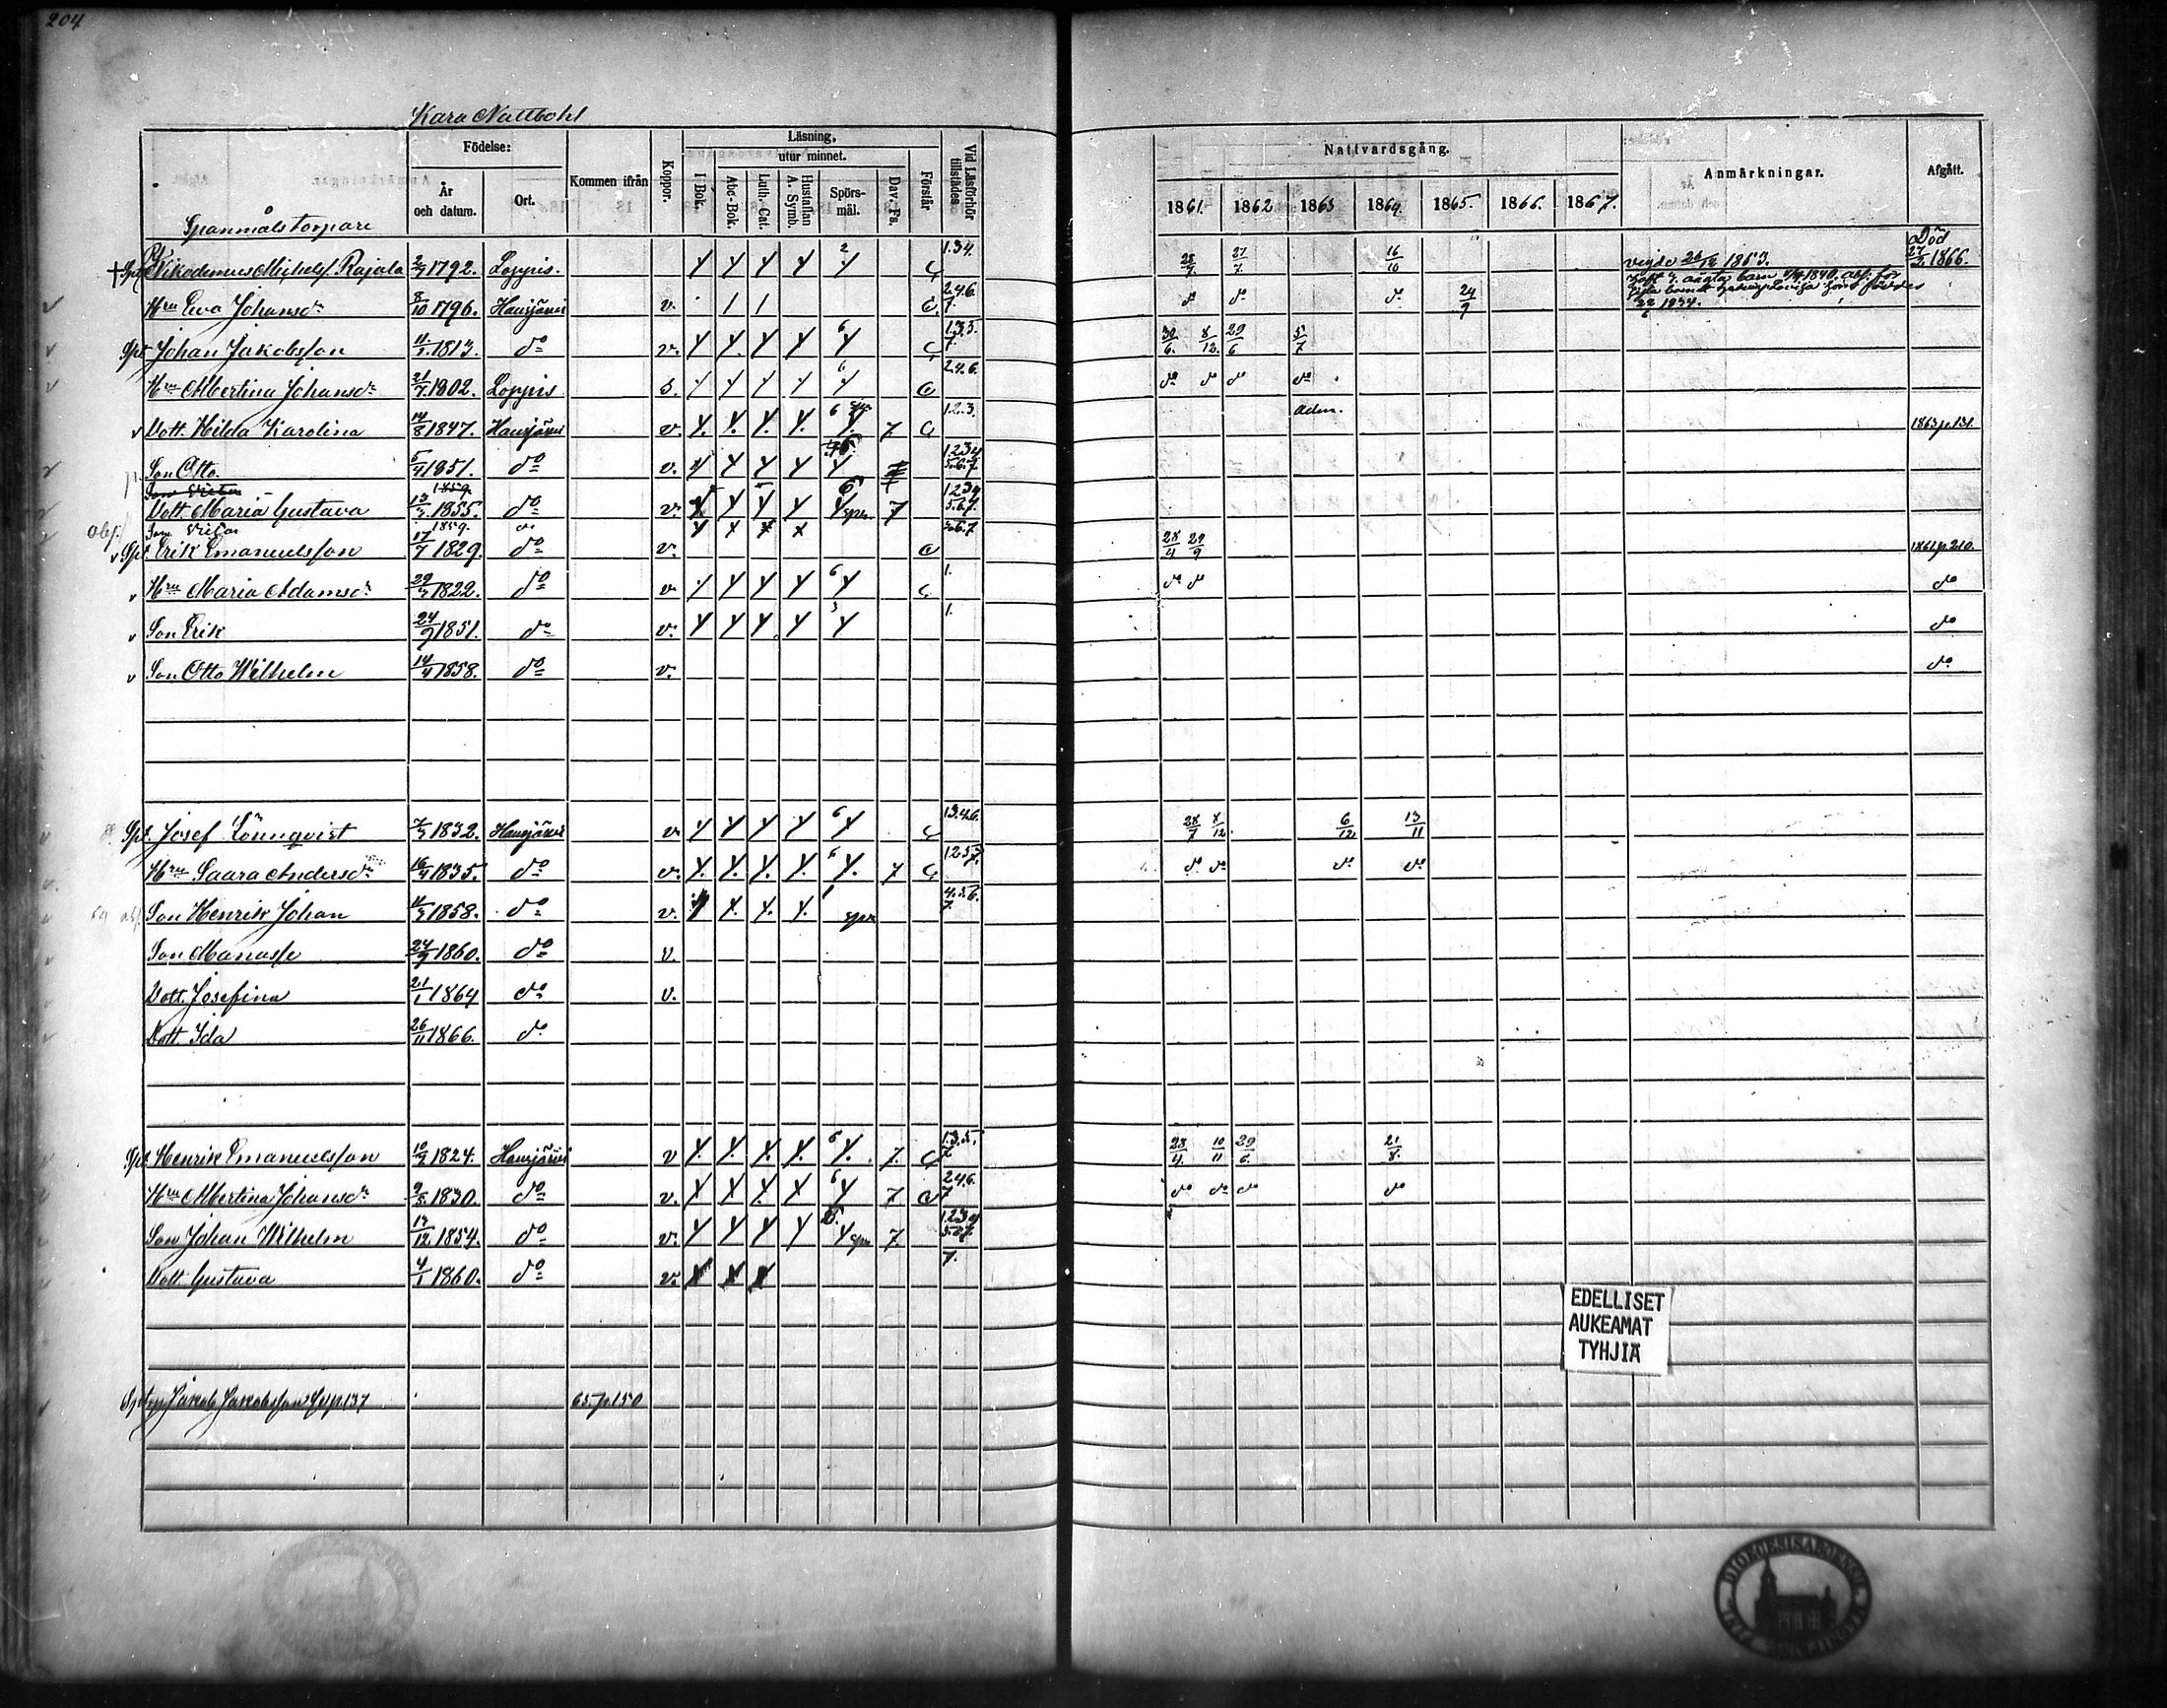 204
Kara Nattbohl
Födelse:
Kommen ifrån
Koppor.
Läsning,
utur minnet.
I Bok.
Abc-Bok.
Luth. Cat.
Hustaflan A. Symb.
Spörs-mål.
Dav. Ps.
Förstår
Vid Läsförhör tillstädes
År och datum.
Ort.
Nattvardsgång.
1861. 1862 1863 1864. 1865. 1866. 1867.
Anmärkningar.
Afgått.
Spanmåls torpare
Nikodemus Michelsf. Rajala 2/9 1792. Loppis. 1.3.4. 28/7 27/7. 16/10 Död 27/2 1866.
Hru Eva Johansdr 8/10 1796. Hausjärvi v. 2.4.6. 7. do do do 24/9
Spt Johan Jakobsson 11/1. 1813. do v. 6 1.3.5. 7. 30/6. 8/12. 29/6 5/7
Hru Albertina Johansdr 21/7. 1802. Loppis s. 6 2.4.6. do do do do
adm.
v Dott. Hilda Karolina 14/8 1847. Hausjärvi v. 6 7 1.2.3. 1863 p. 131.
Son Otto 5/4 1851. do v. 1234 5.6.7.
1859.
Dott. Maria Gustava 13/3 1855. do v. 6 spr. 7 1.2.3.4 5.6.7.
abs. Son Victor 1859. do 5.6.7
v Spt Erik Emanuelsson 17/7 1829. do v. 28/4 29/9 1862 p. 210.
v Hru Maria Adamsdr 29/3 1822. do v. 6 1. do do do
v Son Erik 24/9 1851. do v. 3 1. do
v Son Otto Wilhelm 14/4 1858. do v. do
Spt. Josef Lönnqvist 7/3 1832. Hausjärvi v. 6 1.3.4.6. 28/7 8/12. 6/12 13/11
Hru Saara Andersdr 16/4 1835. do v. 6 7 1.2.5.7. do do do do
abs. Son Henrik Johan 11/3 1858. do v. spr 4.5.6. 7.
Son Manasse 24/9 1860. do v.
Dott. Josefina 21/1 1864 do v.
Dott. Ida 26/11 1866. do
Spt Henrik Emanuelsson 10/2 1824. Hausjärvi v 6 7. 1.3.5. 7. 28/4. 10/11 29/6. 21/8.
Hru Albertina Johansdr 9/5 1830. do v. 6 7 2.4.6. 7 do do do do
Son Johan Wilhelm 17/12. 1854. do v. spr 7. 1.2.3.4 5.6.7.
Dott Gustava 4/1 1860. do v. 7.
EDELLISET
AUKEAMAT
TYHJIÄ
Jakob Jakobsson p. 137 65. p. 150